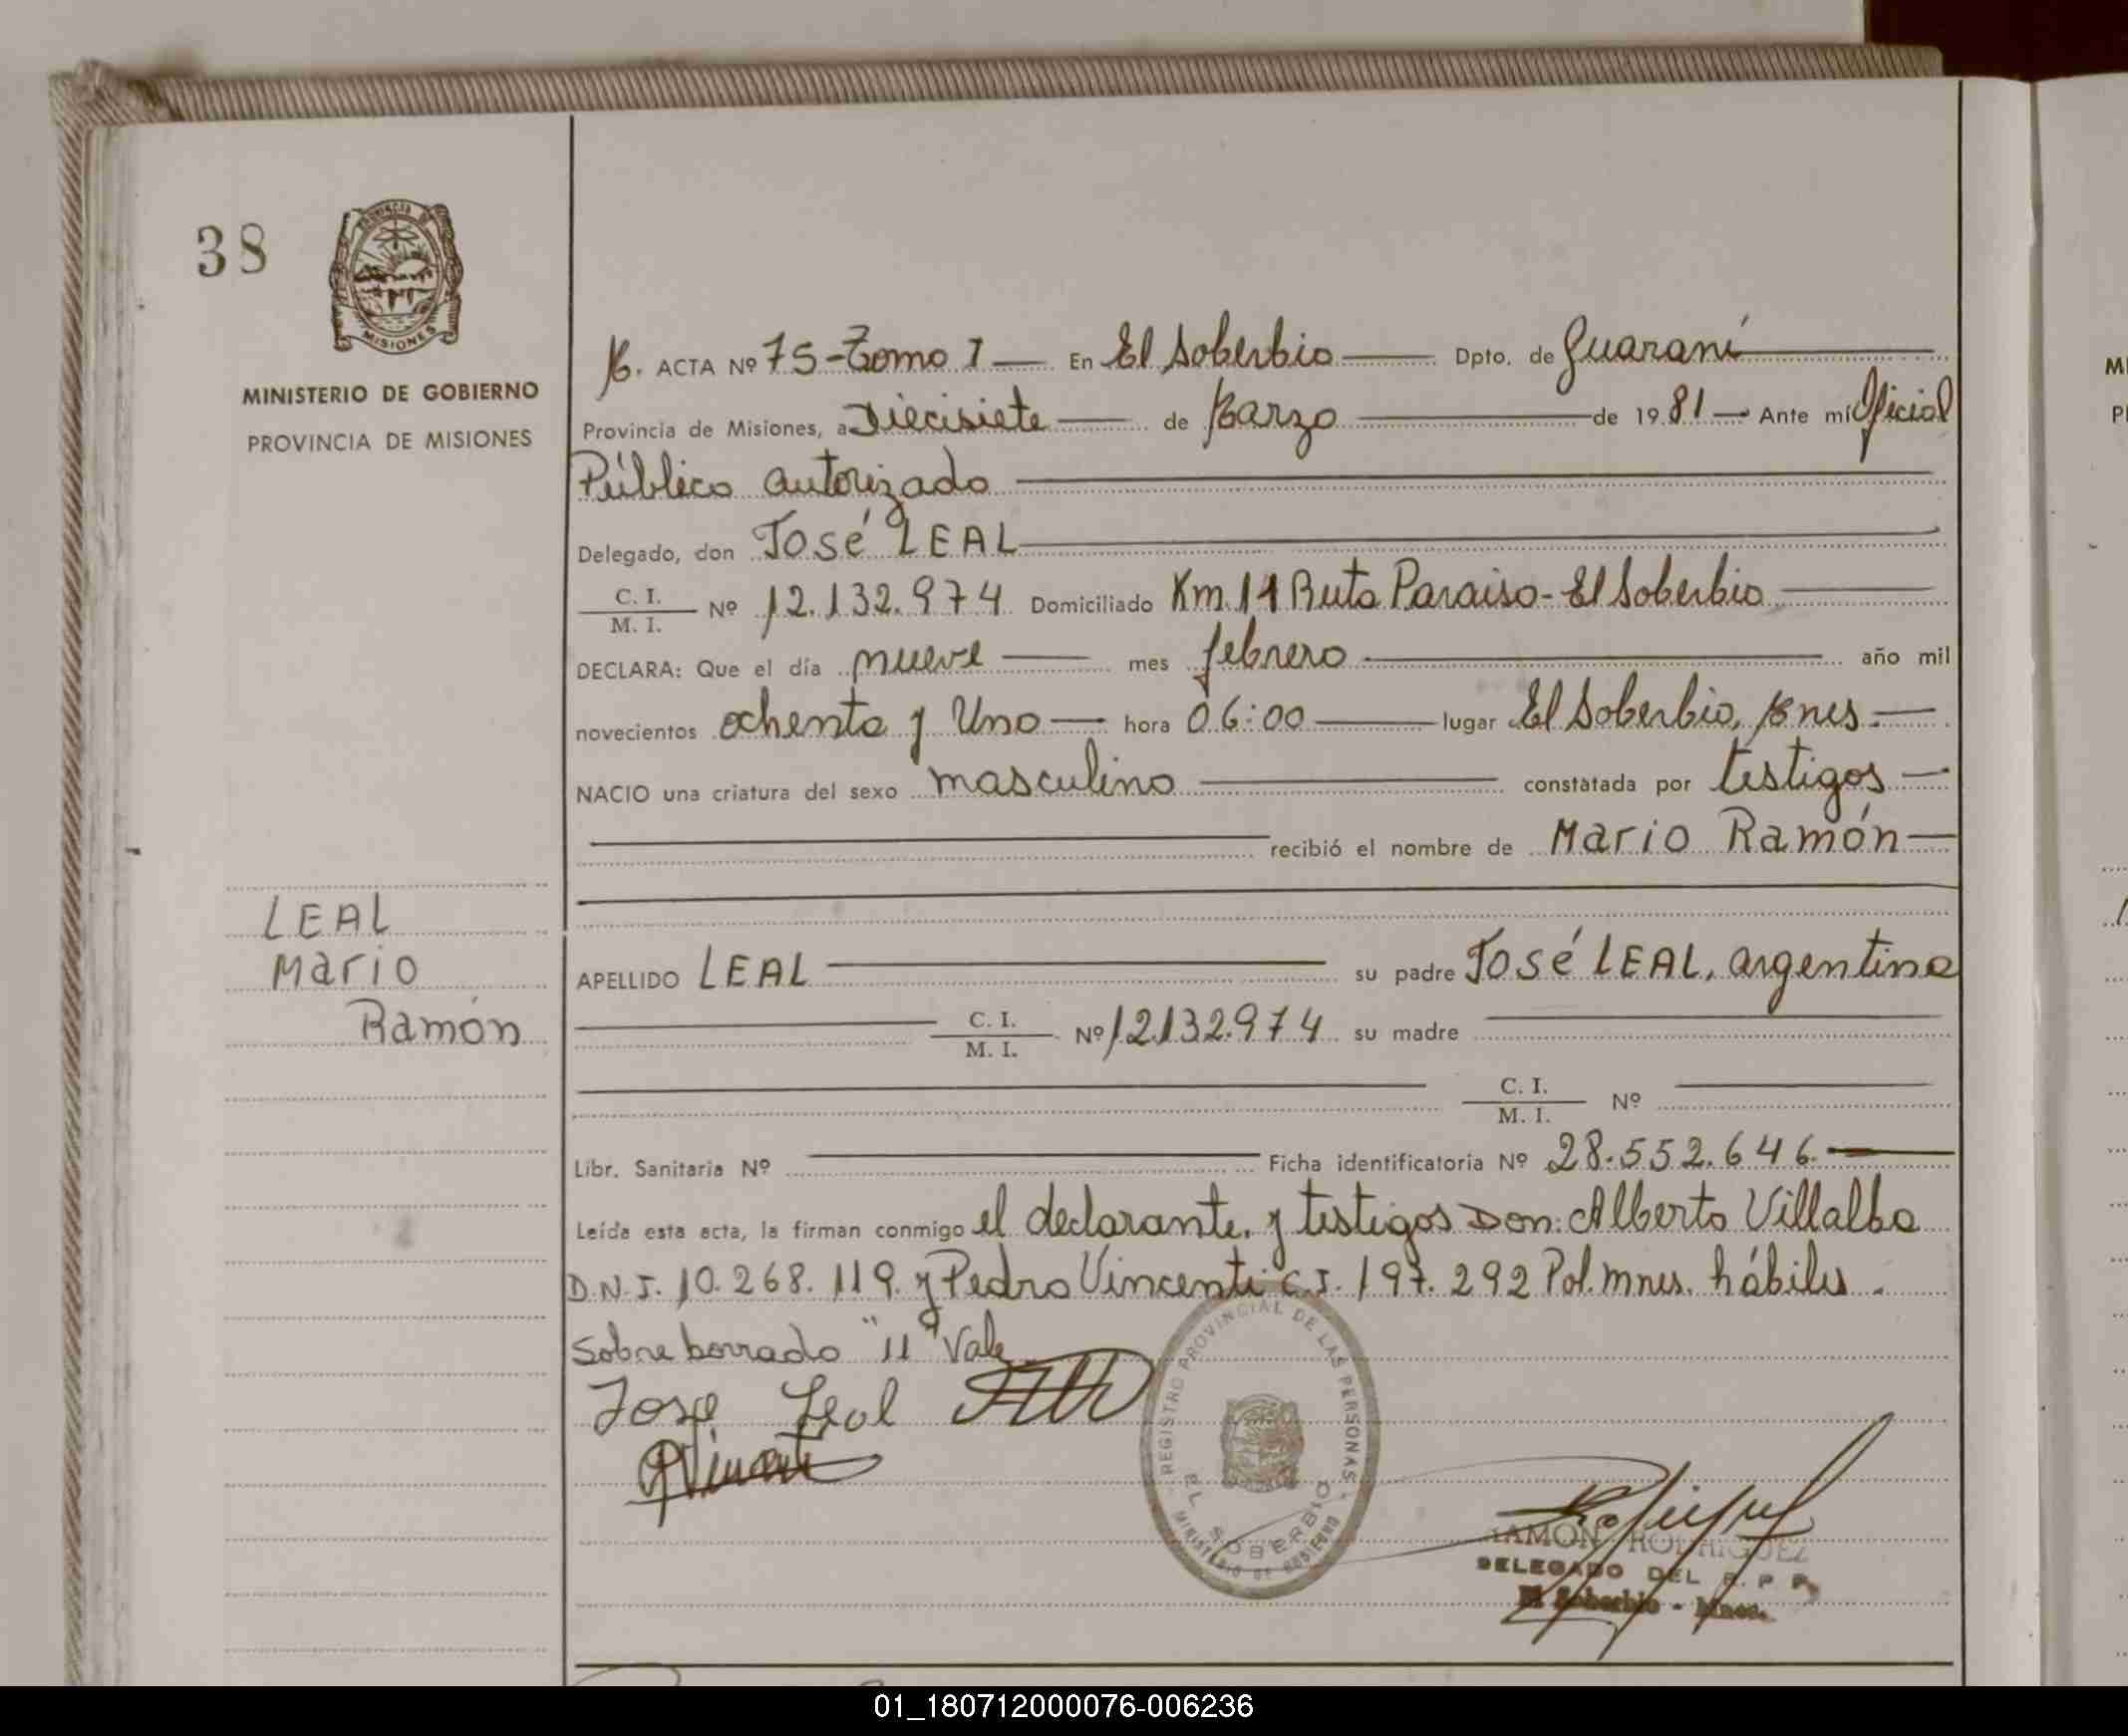 38
PROVINCIA DE
MISIONES
MINISTERIO DE GOBIERNO
PROVINCIA DE MISIONES
M. ACTA Nº 75-Tomo I En El Soberbio Dpto. de Guaraní
Provincia de Misiones, a Diecisiete de Marzo de 1981 Ante mí Oficial
Público autorizado
Delegado, don José LEAL
C. I.
M. I. Nº 12.132.974 Domiciliado Km. 11 Ruta Paraiso-El Soberbio
DECLARA: Que el día nueve mes febrero año mil
novecientos ochenta y Uno hora 06:00 lugar El Soberbio, Mnes.
NACIO una criatura del sexo masculino constatada por testigos
recibió el nombre de Mario Ramón
LEAL
Mario
Ramón
APELLIDO LEAL su padre José LEAL, argentino
C. I.
M. I. Nº 12.132.974 su madre
C. I.
M. I. Nº
Libr. Sanitaria Nº Ficha identificatoria Nº 28.552.646.
Leída esta acta, la firman conmigo el declarante, y testigos Don: Alberto Villalba
D.N.I. 10.268.119. y Pedro Vincenti C.I. 197.292 Pol. Mnes. hábiles.
Sobre borrado "11" Vale
Jose Leal
REGISTRO PROVINCIAL DE LAS PERSONAS
EL SOBERBIO
MINISTERIO DE GOBIERNO
RAMON RODRIGUEZ
DELEGADO DEL R. P. P.
El Soberbio - Mnes.
01_180712000076-006236